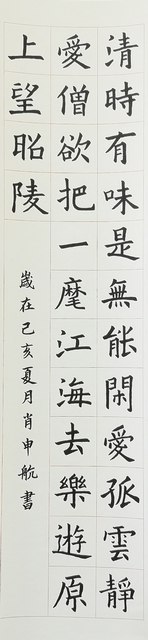 清時有味是無能閑愛孤雲靜
愛僧欲把一麾江海去樂遊原
上望昭陵
歲在己亥夏月肖申航書